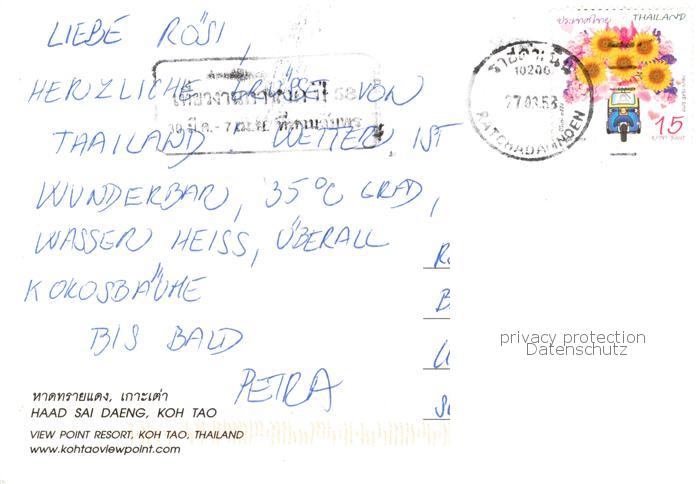 LIEBE RÖSI,
HERZLICHE GRÜSSE VON
THAILAND. WETTER IST
WUNDERBAR, 35°C GRAD,
WASSER HEISS, ÜBERALL
KOKOSBÄUME
BIS BALD
PETRA
หาดทรายแดง, เกาะเต่า
HAAD SAI DAENG, KOH TAO
VIEW POINT RESORT, KOH TAO, THAILAND
www.kohtaoviewpoint.com
ประเทศไทย THAILAND
15
10200
27.03.53
RATCHADAMNOEN
privacy protection
Datenschutz